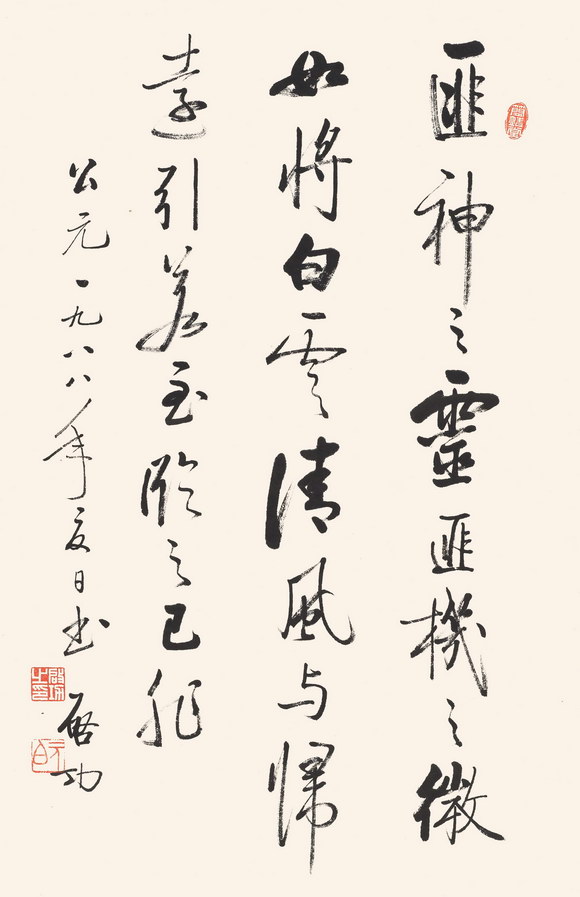 匪神之靈匪機之微
如將白雲清風与歸
遠引若至臨之已非
公元一九八八年夏日书
启功
啟功之印
元白